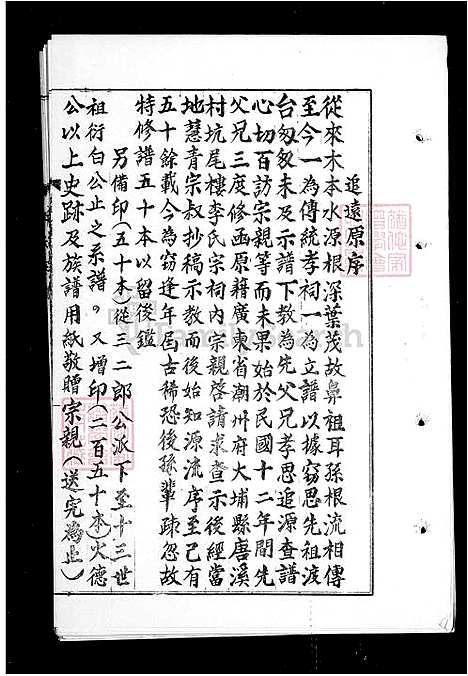 追遠原序
從來木本水源根深葉茂故鼻祖耳孫根流相傳
至今一為傳統孝祠一為立譜以據窃思先祖渡
台匆匆未及示譜下教為先父兄孝思追源查譜
心切百訪宗親等而未果始於民國十二年間先
父兄三度修函原籍廣東省潮州府大埔縣唐溪
村坑尾樓李氏宗祠内宗親啓請求查示後經當
地慧青宗叔抄稿示教而後始知源流序至已有
五十餘載今為窃逢年屆古稀恐後孫輩疎忽故
特修譜五十本以留後鑑
另備印(五十本)從三二郎公派下至十三世
祖衍白公止之系譜。又增印(二百五十本)火德
公以上史跡及族譜用紙敬贈宗親(送完為止)